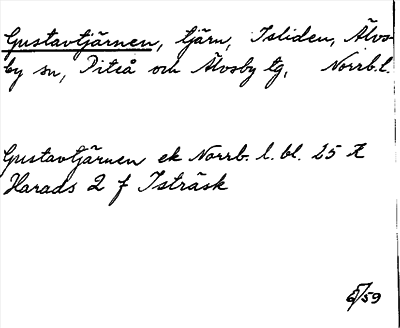 Gustavtjärnen, tjärn, Isliden, Älvs-
by sn, Piteå och Älvsby tg, Norrb.l.
Gustavtjärnen ek Norrb. l. bl. 25
Harads 2 f Isträsk
/59